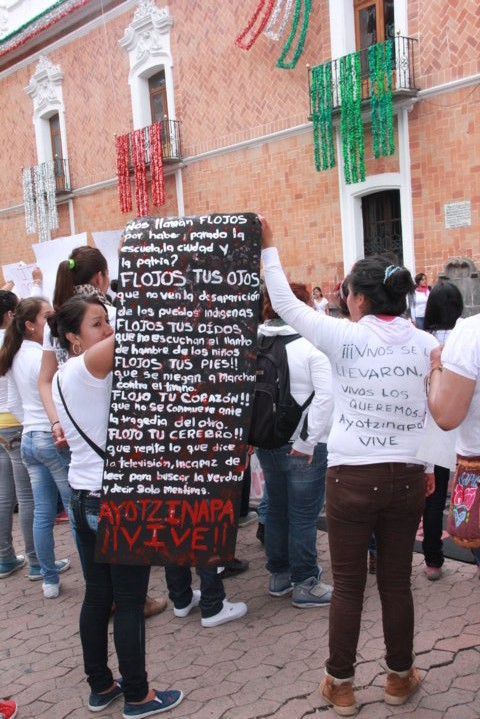 ¿Nos llaman FLOJOS
por haber parado la
escuela, la ciudad y
la patria?
FLOJOS TUS OJOS
que no ven la desaparición
de los pueblos indígenas
FLOJOS TUS OIDOS
que no escuchan el llanto
de hambre de los niños
FLOJOS TUS PIES!!
que se niegan a Marchar
contra el tirano.
FLOJO TU CORAZÓN!!
que no se conmueve ante
la tragedia del otro.
FLOJO TU CEREBRO!!
que repite lo que dice
la televisión, incapaz de
leer para buscar la Verdad
y decir Solo Mentiras.
AYOTZINAPA
¡¡VIVE!!
¡¡¡VIVOS SE
LLEVARON,
VIVOS LOS
QUEREMOS
AYOTZINAPA
VIVE